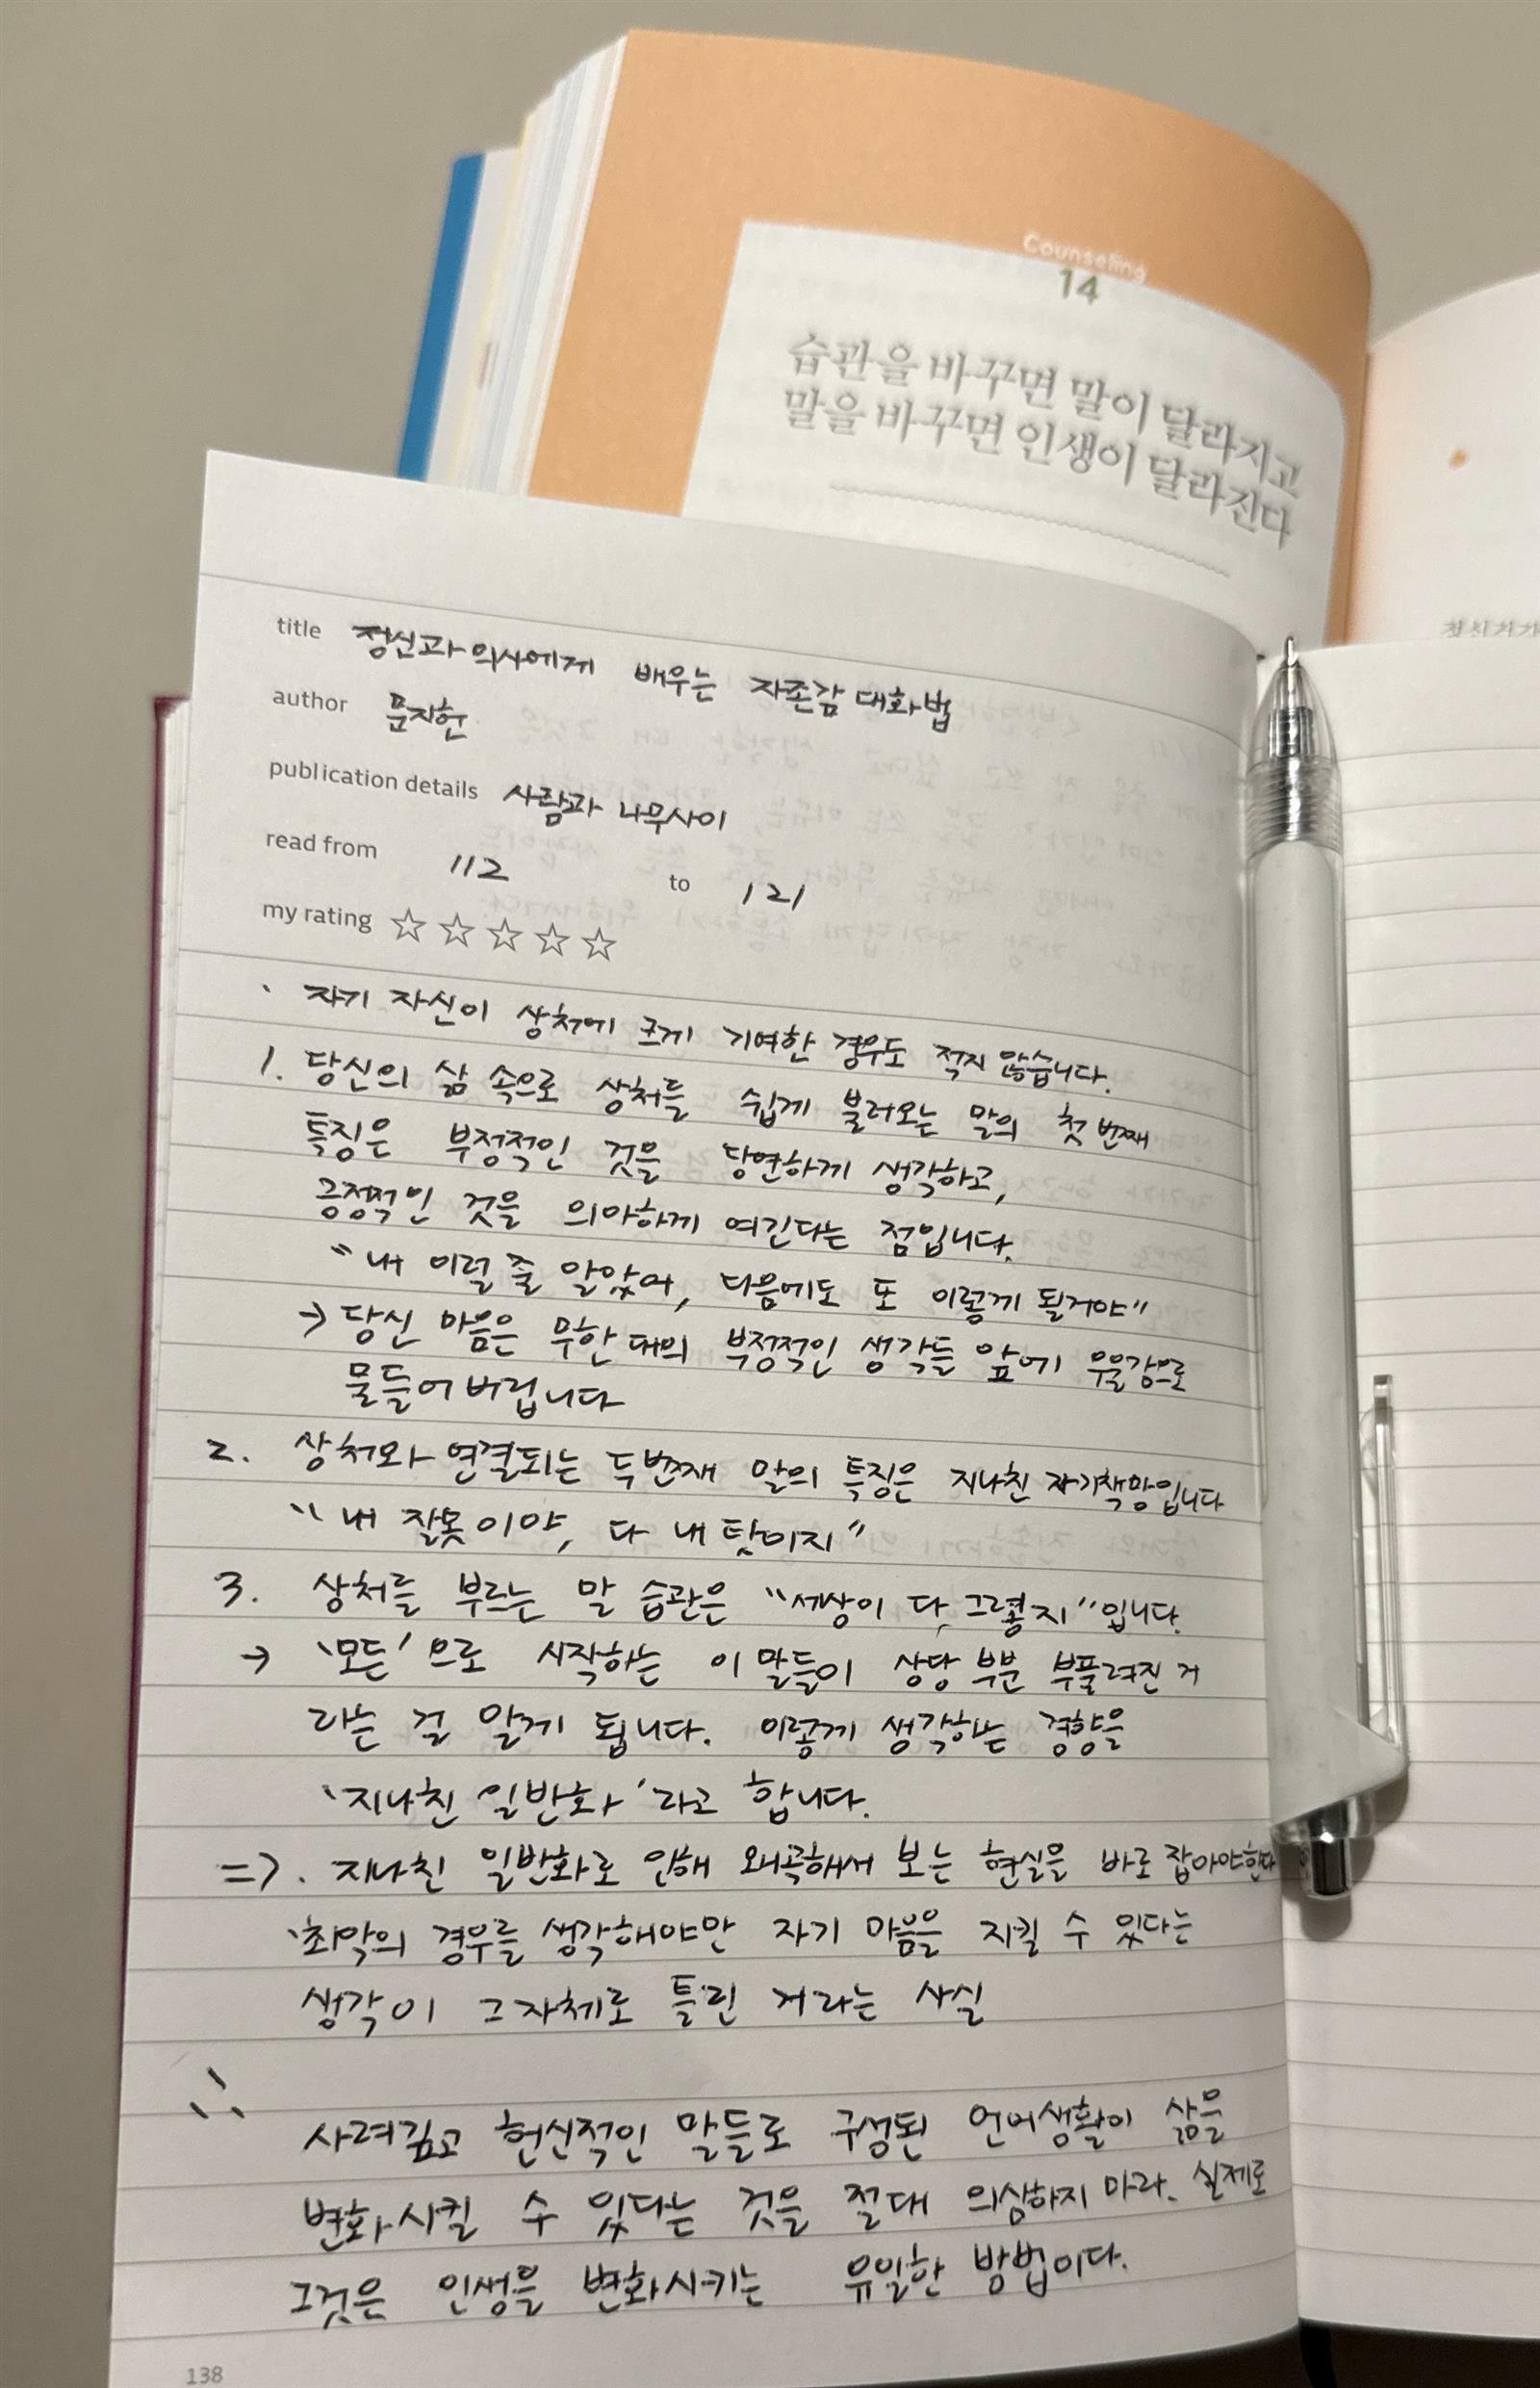 Counseling
14
습관을 바꾸면 말이 달라지고
말을 바꾸면 인생이 달라진다
title 정신과 의사에게 배우는 자존감 대화법
author 문지현
publication details 사람과 나무사이
read from 112 to 121
my rating ☆☆☆☆☆
· 자기 자신이 상처에 크게 기여한 경우도 적지 않습니다.
1. 당신의 삶 속으로 상처를 쉽게 불러오는 말의 첫 번째
특징은 부정적인 것을 당연하게 생각하고,
긍정적인 것을 의아하게 여긴다는 점입니다.
"내 이럴 줄 알았어, 다음에도 또 이렇게 될거야"
→ 당신 마음은 무한대의 부정적인 생각들 앞에 우울감으로
물들어버립니다
2. 상처와 연결되는 두번째 말의 특징은 지나친 자기책망입니다
"내 잘못이야, 다 내 탓이지"
3. 상처를 부르는 말 습관은 "세상이 다 그렇지"입니다.
→ '모든'으로 시작하는 이 말들이 상당 부분 부풀려진 거
라는 걸 알게 됩니다. 이렇게 생각하는 경향을
'지나친 일반화'라고 합니다.
=> . 지나친 일반화로 인해 왜곡해서 보는 현실을 바로 잡아야한다
'최악의 경우를 생각해야만 자기 마음을 지킬 수 있다는
생각이 그 자체로 틀린 거라는 사실
∴
사려깊고 헌신적인 말들로 구성된 언어생활이 삶을
변화시킬 수 있다는 것을 절대 의심하지 마라. 실제로
그것은 인생을 변화시키는 유일한 방법이다.
138